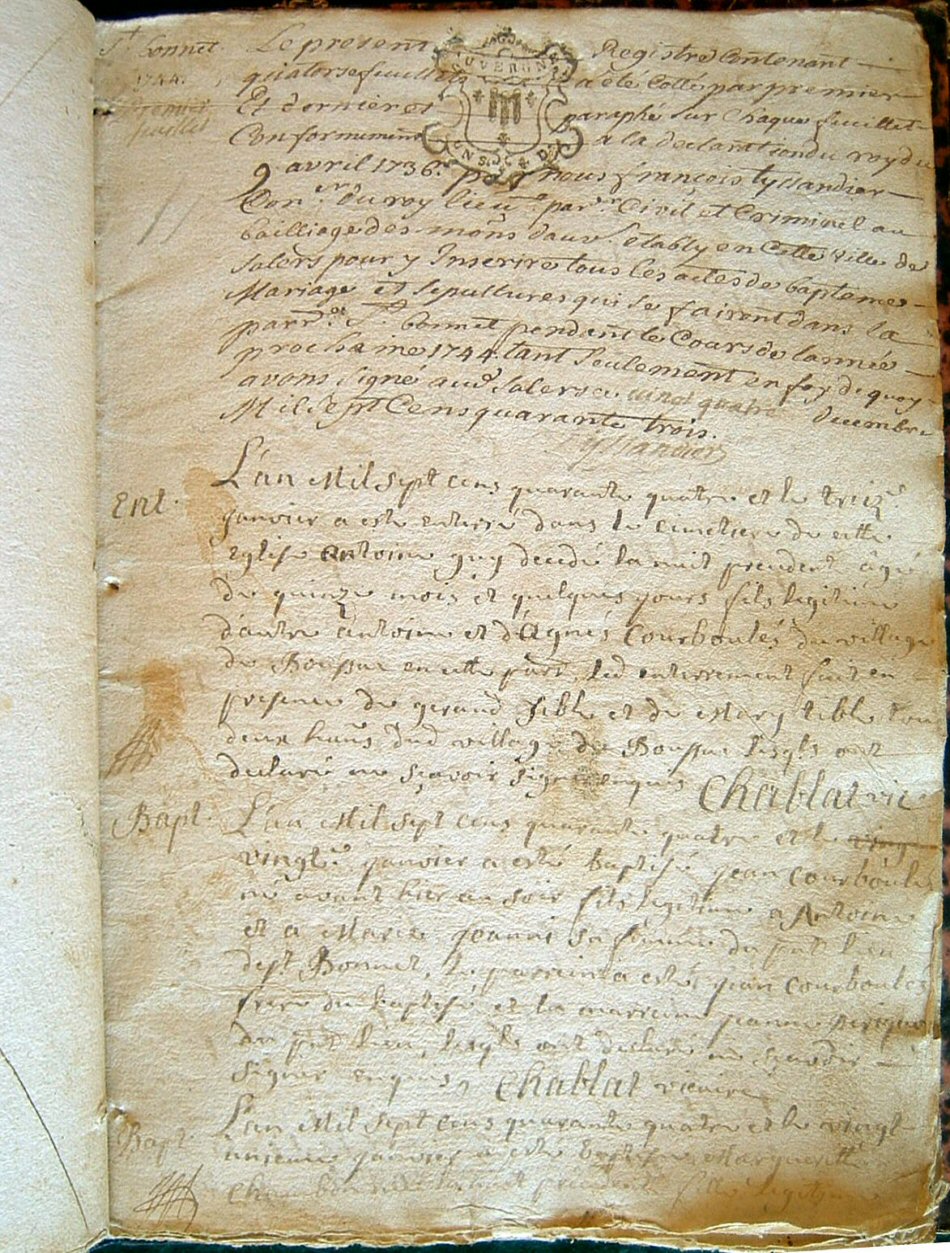 St bonnet
1744.
premier
fuillet
Le present Registre Contenant
quatorse fuillets a été Cotté par premier
Et dernier et paraphé sur Chaque fuillet
Conformement a la declaration du roy du
9 avril 1736. par nous françois tyssandier
Con.er du roy lieu.t par.er Civil et Criminel au
bailliage des mons d'auv. étably en Cette ville de
Salers pour y Inserire tous les actes de bapteme
Mariage et sepultures qui se fairont dans la
parr.sse St bonnet pendent le Cours de lannée
prochaine 1744. tant seulement en foy de quoy
avons signé aud. Salers ce vingt quatre decembre
Mil sept Cens quarante trois.
Tyssandier
AUVERGNE
Ent.
L'an Mil sept cens quarante quatre et le treiz.e
janvier a esté enterré dans le cimetiere de cette
eglise antoine decedé la nuit precedent âgé
de quinze mois et quelques jours fils legitime
d'autre antoine et d'Agnés Courboulés du village
de en cette parr. led enterrement fait en
presence de gerand et de tous
deux du d village de lesqls ont
declaré ne sçavoir signer enquis Chablat vic
Bapt.
L'an Mil sept cens quarante quatre et le ving
vingt.e janvier a esté baptisé jean Courboulés
né avant hier au soir fils legitime a Antoine
et a Marie sa femme du pnt lieu
de St Bonnet, le parrain a esté jean Courboulés
frere du baptisé et la marraine jeanne
du pnt lieu, lesqls ont declaré ne sçavoir
signer enquis, Chablat vicaire
Bapt
L'an Mil sept cens quarante quatre et le vingt
unieme janvier a esté baptisée Marguerite
Chambon née la nuit precedent fille legitime